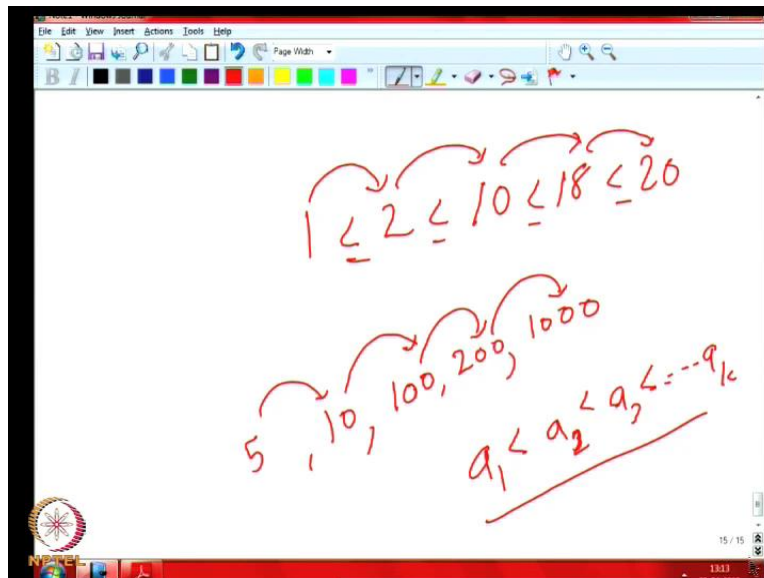 File Edit View Insert Actions Tools Help
Page Width
B I
1 ≤ 2 ≤ 10 ≤ 18 ≤ 20
5, 10, 100, 200, 1000
a₁ < a₂ < a₃ < = -- aₖ
15 / 15
NPTEL
13:13